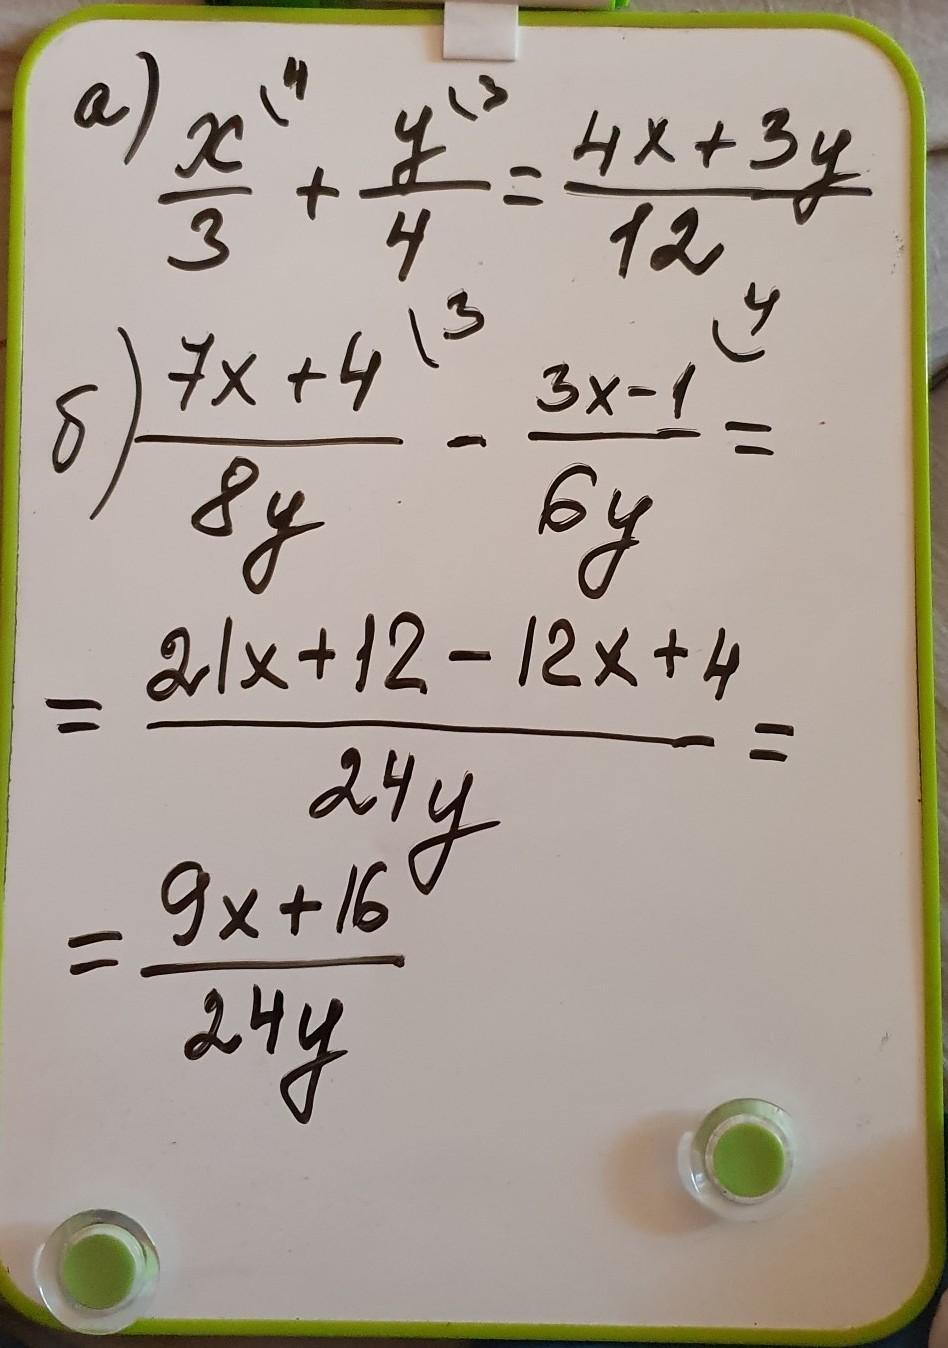 а) x\4/3 + y\3/4 = 4x+3y/12
б) 7x+4\3/8y - 3x-1\4/6y =
= 21x+12-12x+4/24y =
= 9x+16/24y